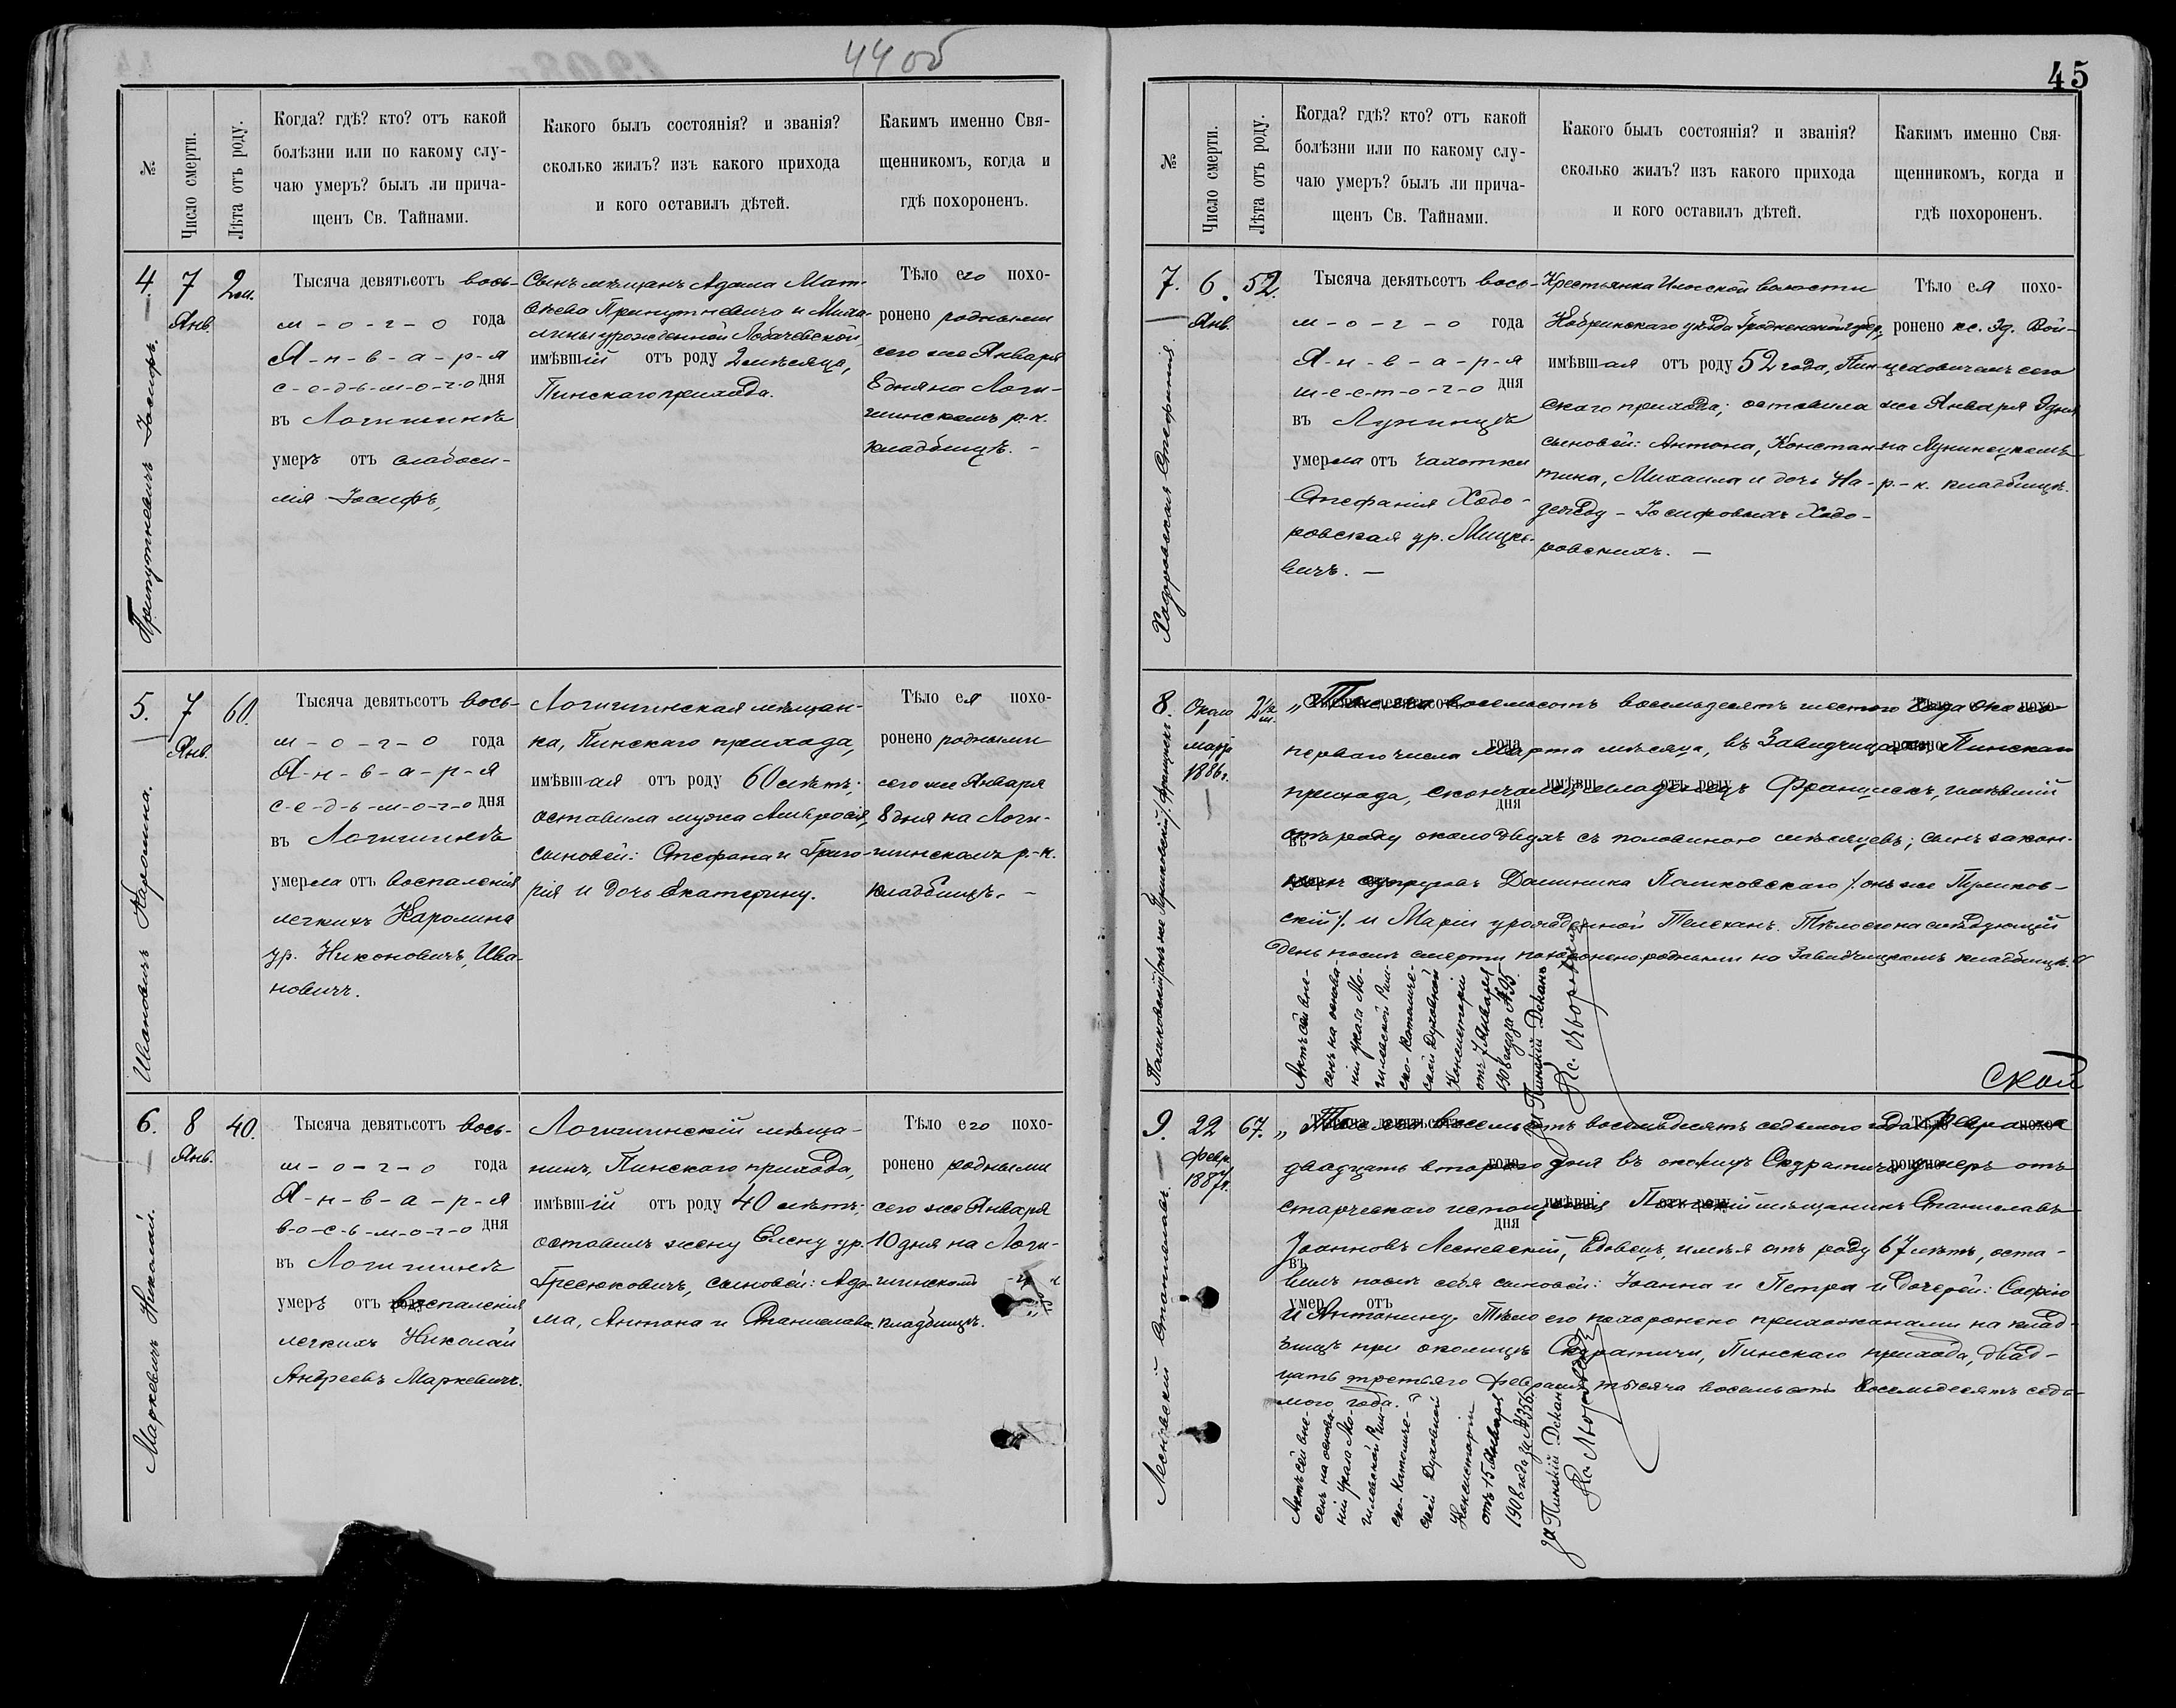 44 об
№
Число смерти.
Лѣта отъ роду.
Когда? гдѣ? кто? отъ какой
болѣзни или по какому слу-
чаю умеръ? былъ ли прича-
щенъ Св. Тайнами.
Какого былъ состоянія? и званія?
сколько жилъ? изъ какого прихода
и кого оставилъ дѣтей.
Какимъ именно Свя-
щенникомъ, когда и
гдѣ похороненъ.
4.
Припутневичъ Іосифъ.
7
Янв.
2 м.
Тысяча девятьсотъ вось-
м-о-г-о года
Я-н-в-а-р-я
с-е-д-ь-м-о-г-о дня
въ Логишинѣ
умеръ отъ слабоси-
лія Іосифъ,
Сынъ мѣщанъ Адама Мат-
ѳѣева Припутневича и Миха-
лины урожденной Лобачевской
имѣвшій отъ роду 2 мѣсяца,
Пинскаго прихода.
Тѣло его похо-
ронено родными
сего же Января
8 дня на Логи-
шинскомъ р.-к.
кладбищѣ. -
5.
Ивановичъ Каролина.
7
Янв.
60.
Тысяча девятьсотъ вось-
м-о-г-о года
Я-н-в-а-р-я
с-е-д-ь-м-о-г-о дня
въ Логишинѣ
умерла отъ воспаленія
легкихъ Каролина
ур. Никоновичъ, Ива-
новичъ.
Логишинская мѣщан-
ка, Пинскаго прихода,
имѣвшая отъ роду 60 лѣтъ;
оставила мужа Амвросія,
сыновей: Стефана и Григо-
рія и дочь Екатерину.
Тѣло ея похо-
ронено родными
сего же Января
8 дня на Логи-
шинскомъ р.-к.
кладбищѣ. -
6.
Маркевичъ Николай.
8
Янв.
40.
Тысяча девятьсотъ вось-
м-о-г-о года
Я-н-в-а-р-я
в-о-с-ь-м-о-г-о дня
въ Логишинѣ
умеръ отъ воспаленія
легкихъ Николай
Андреевъ Маркевичъ.
Логишинскій мѣща-
нинъ, Пинскаго прихода,
имѣвшій отъ роду 40 лѣтъ;
оставилъ жену Елену ур.
Гресюковичъ, сыновей: Ада-
ма, Антона и Станислава.
Тѣло его похо-
ронено родными
сего же Января
10 дня на Логи-
шинскомъ
кладбищѣ.
45
№
Число смерти.
Лѣта отъ роду.
Когда? гдѣ? кто? отъ какой
болѣзни или по какому слу-
чаю умеръ? былъ ли прича-
щенъ Св. Тайнами.
Какого былъ состоянія? и званія?
сколько жилъ? изъ какого прихода
и кого оставилъ дѣтей.
Какимъ именно Свя-
щенникомъ, когда и
гдѣ похороненъ.
7.
Ходоровская Стефанія.
6.
Янв.
52.
Тысяча девятьсотъ вось-
м-о-г-о года
Я-н-в-а-р-я
ш-е-с-т-о-г-о дня
въ Лунинцѣ
умерла отъ чахотки
Стефанія Ходо-
ровская ур. Мицке-
вичъ. —
Крестьянка Илоской волости
Кобринскаго уѣзда Гродненской губер.,
имѣвшая отъ роду 52 года, Пин-
скаго прихода; оставила
сыновей: Антона, Констан-
тина, Михаила и дочь На-
дежду - Іосифовыхъ Ходо-
ровскихъ. —
Тѣло ея похо-
ронено кс. Эд. Вой-
цеховичемъ сего
же Января 9 дня
на Лунинецкомъ
р.-к. кладбищѣ.
8.
Около
марта
1886 г.
2½ м.
„Тысяча восемьсотъ восемьдесятъ шестого года около
перваго числа Марта мѣсяца, въ Завидчицахъ, Пинскаго
прихода, скончался младенецъ Францискъ, имѣвшій
отъ роду около двухъ съ половиною мѣсяцевъ; сынъ закон-
ныхъ супруговъ Доминика Поликовскаго /: онъ же Пуликов-
скій :/ и Маріи урожденной Телеханъ. Тѣло его на слѣдующій
день послѣ смерти похоронено родными на Завидчицкомъ кладбищѣ."
Актъ сей вне-
сенъ на основа-
ніи указа Мо-
гилевской Рим-
ско-Католиче-
ской Духовной
Консисторіи
отъ 7 Января
1908 года за № 95.
За Пинскій Деканъ
ской
9.
Лесневскій Станиславъ.
22
Февр.
1887 г.
67.
„Тысяча восемьсотъ восемьдесятъ седьмого года Февраля
двадцать второго дня въ околицѣ Скуратичи умеръ отъ
старческаго истощенія Пинскій мѣщанинъ Станиславъ
Іоанновъ Лесневскій, вдовецъ, имѣя отъ роду 67 лѣтъ, оста-
вилъ послѣ себя сыновей: Іоанна и Петра и дочерей: Софію
и Антонину. Тѣло его похоронено прихожанами на клад-
бищѣ при околицѣ Скуратичи, Пинскаго прихода, двад-
цать третьяго Февраля тысяча восемьсотъ восемьдесятъ седь-
мого года."
Актъ сей вне-
сенъ на основа-
ніи указа Мо-
гилевской Рим-
ско-Католиче-
ской Духовной
Консисторіи
отъ 15 Января
1908 года за № 356.
За Пинскій Деканъ